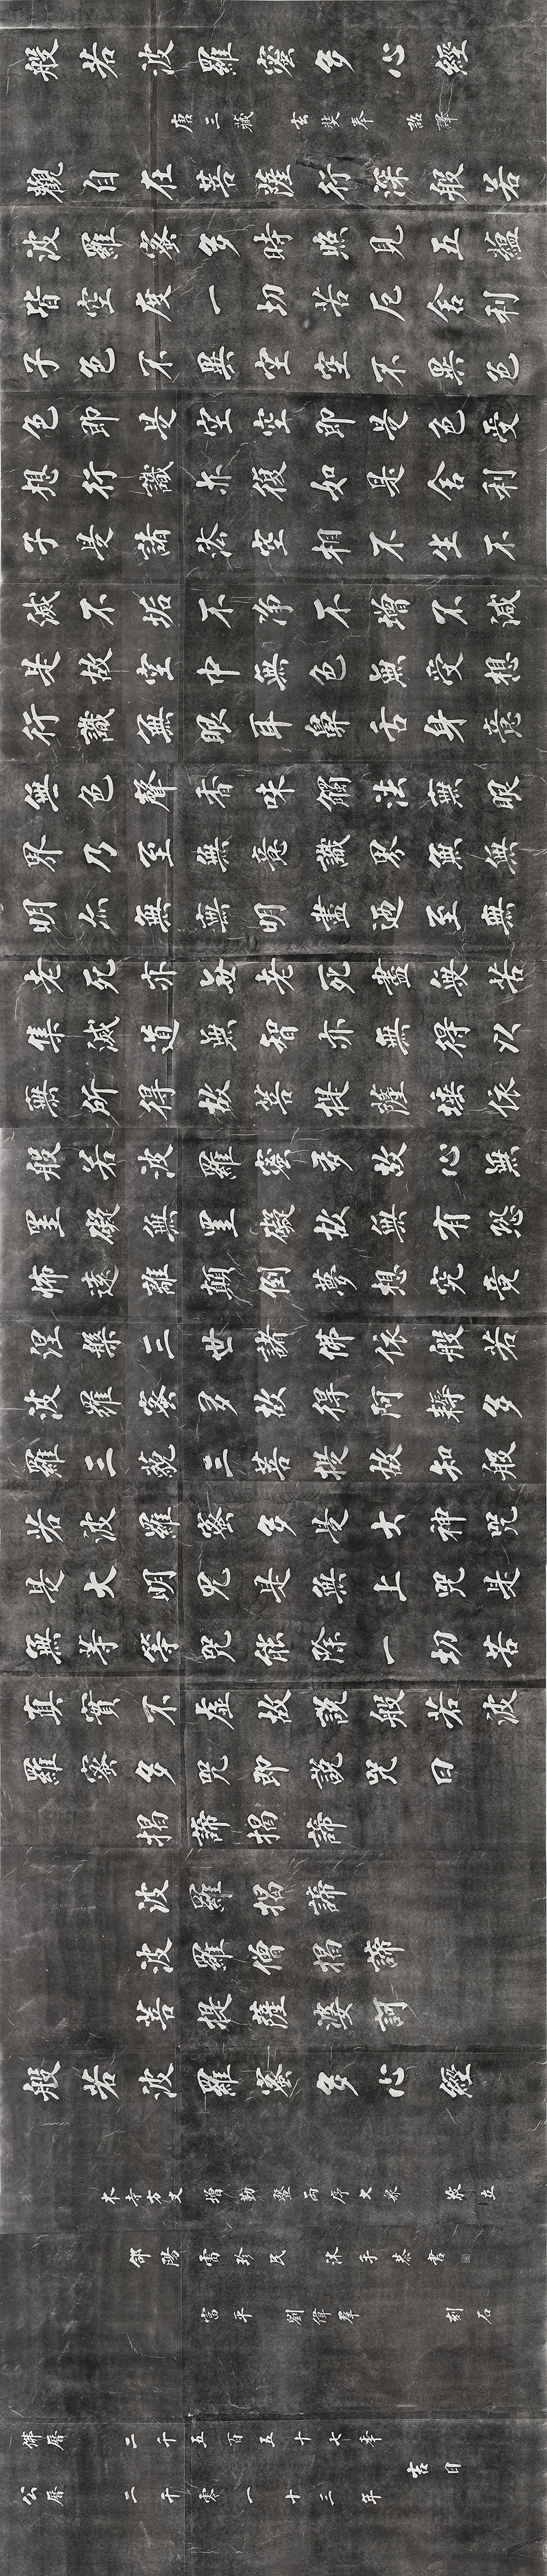 般若波羅蜜多心經
唐三藏玄奘奉詔譯
觀自在菩薩行深般若
波羅蜜多時照見五蘊
皆空度一切苦厄舍利
子色不異空空不異色
色即是空空即是色受
想行識亦復如是舍利
子是諸法空相不生不
滅不垢不淨不增不減
是故空中無色無受想
行識無眼耳鼻舌身意
無色聲香味觸法無眼
界乃至無意識界無無
明亦無無明盡迺至無
老死亦無老死盡無苦
集滅道無智亦無得以
無所得故菩提薩埵依
般若波羅蜜多故心無
罣礙無罣礙故無有恐
怖遠離顛倒夢想究竟
涅槃三世諸佛依般若
波羅蜜多故得阿耨多
羅三藐三菩提故知般
若波羅蜜多是大神咒
是大明咒是無上咒是
無等等咒能除一切苦
真實不虛故說般若波
羅蜜多咒即說咒曰
揭諦揭諦
波羅揭諦
波羅僧揭諦
菩提薩婆訶
般若波羅蜜多心經
本寺方丈增勤暨兩序大眾敬立
郃陽雷珍民沐手恭書
富平劉偉羣刻石
佛曆二千五百五十七年
吉日
公曆二千零一十三年